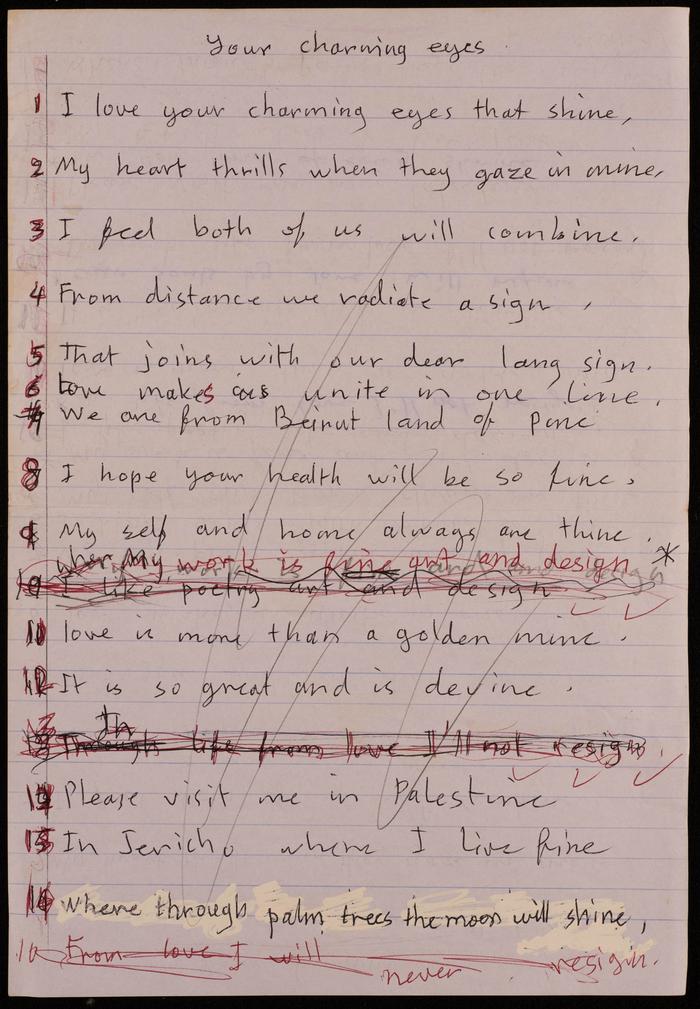 Your charming eyes
1 I love your charming eyes that shine,
2 My heart thrills when they gaze in mine,
3 I feel both of us will combine.
4 From distance we radiate a sign,
5 That joins with our dear lang sign.
6 Love makes us unite in one line.
7 We are from Beirut land of pine
8 I hope your health will be so fine.
9 My self and home always are thine.
when My work is fine art and design *
10 I like poetry art and design
11 love is more than a golden mine.
12 It is so great and is devine.
In
13 Through life from love I'll not resign.
14 Please visit me in Palestine
15 In Jericho where I live fine
16 where through palm trees the moon will shine,
10 From love I will never resign.